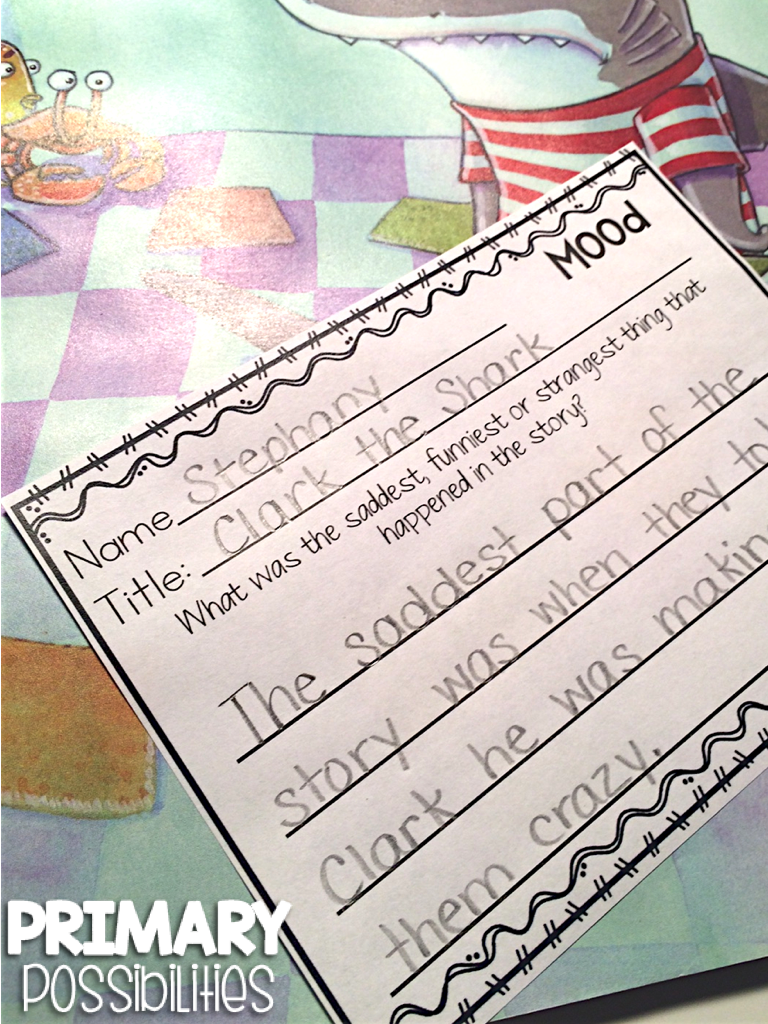 Mood
Name Stephany
Title: Clark the Shark
What was the saddest, funniest or strangest thing that
happened in the story?
The saddest part of the
story was when they
Clark he was making
them crazy.
PRIMARY
POSSIBILITIES